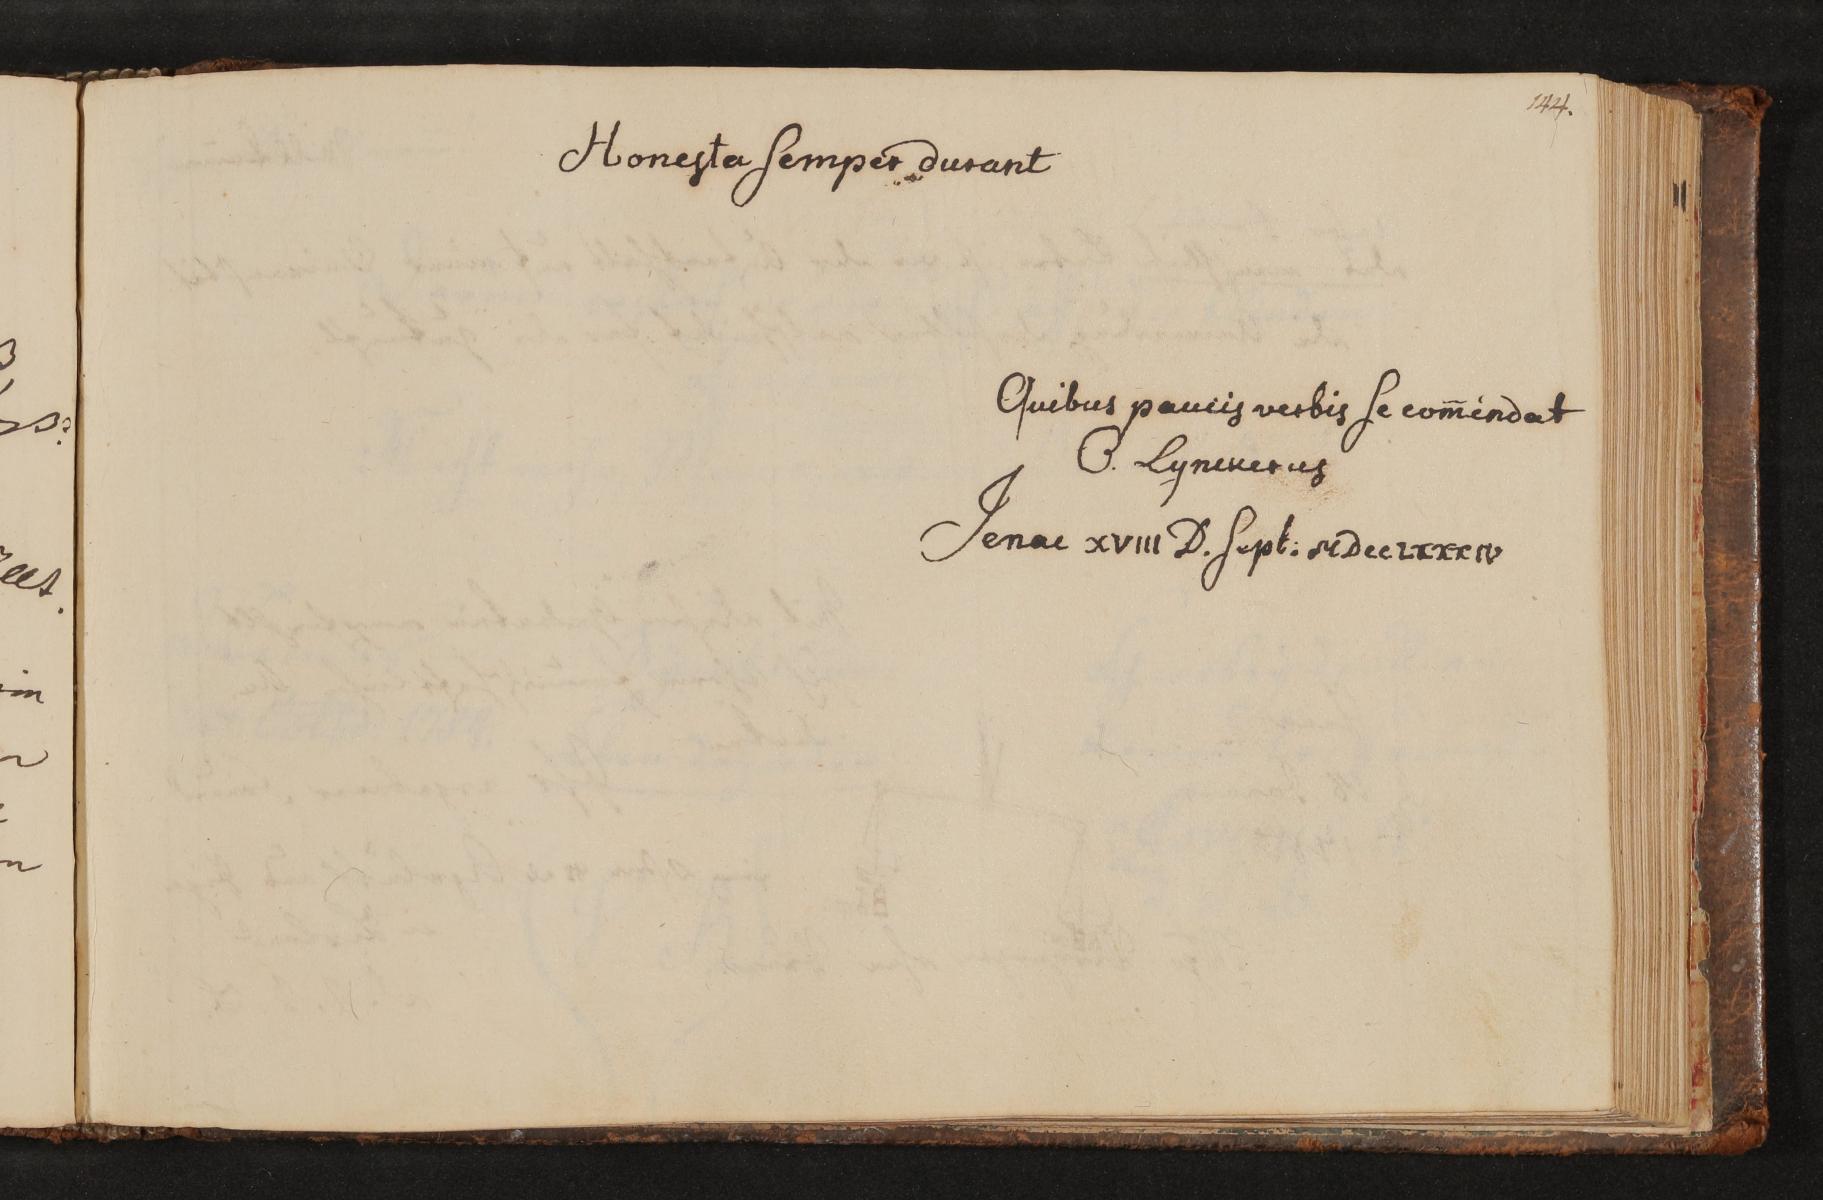 144.
Honesta semper durant
Quibus paucis verbis se com̄endat
C. Lynckerus
Jenae XVIII D. Sept: MDCCLXXXIV